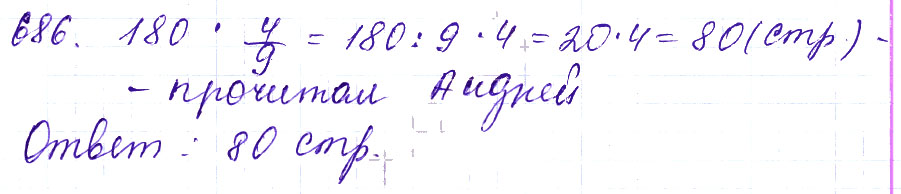 686. 180 · 4/9 = 180 : 9 · 4 = 20 · 4 = 80 (стр.) -
- прочитал Андрей
Ответ: 80 стр.